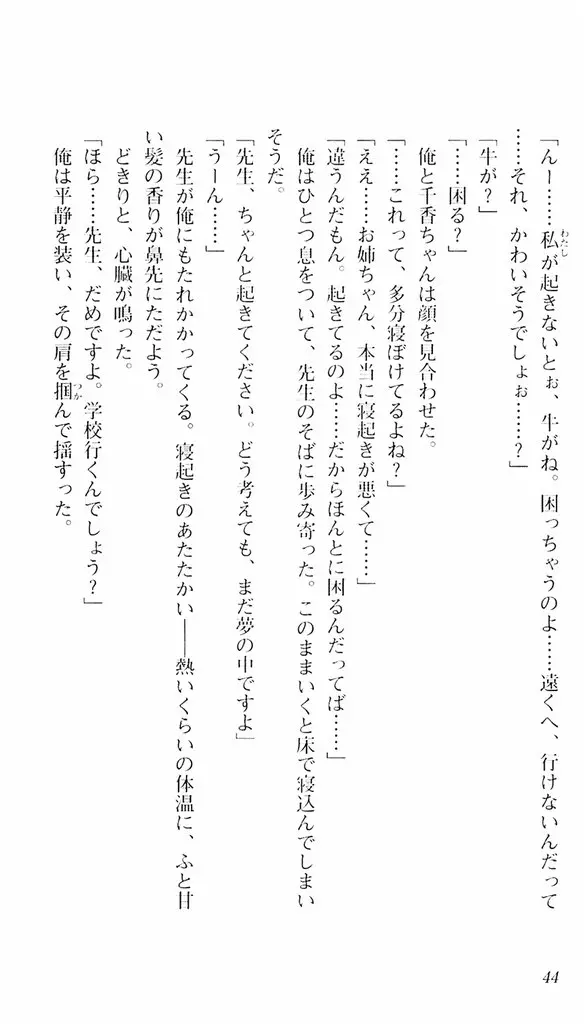 「んー……私が起きないとぉ、牛がね。困っちゃうのよ……遠くへ、行けないんだって
……それ、かわいそうでしょぉ……？」
「牛が？」
「……困る？」
俺と千香ちゃんは顔を見合わせた。
「……これって、多分寝ぼけてるよね？」
「ええ……お姉ちゃん、本当に寝起きが悪くて……」
「違うんだもん。起きてるのよ……だからほんとに困るんだってば……」
俺はひとつ息をついて、先生のそばに歩み寄った。このままいくと床で寝込んでしまい
そうだ。
「先生、ちゃんと起きてください。どう考えても、まだ夢の中ですよ」
「うーん……」
先生が俺にもたれかかってくる。寝起きのあたたかい――熱いくらいの体温に、ふと甘
い髪の香りが鼻先にただよう。
どきりと、心臓が鳴った。
「ほら……先生、だめですよ。学校行くんでしょう？」
俺は平静を装い、その肩を掴んで揺すった。
わたし
つか
44